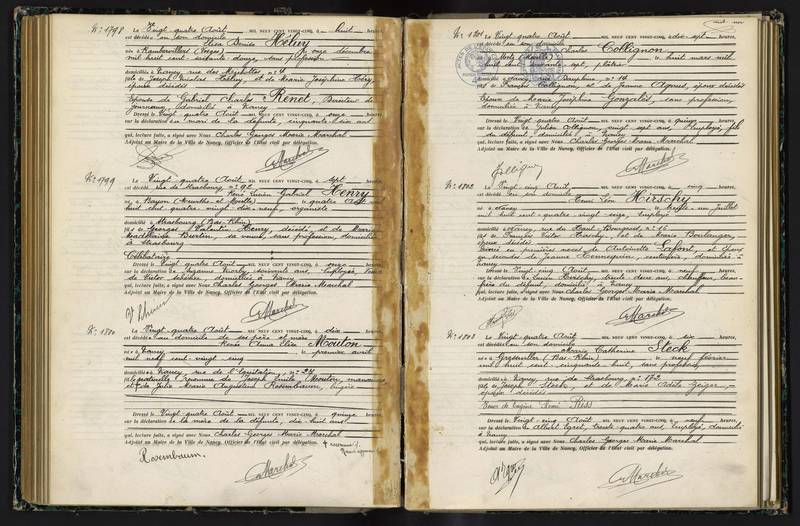 N° 1798 Le Vingt-quatre Août MIL NEUF CENT VINGT-CINQ, à huit heures,
est décédée en son domicile
Elisa Denise Héluy
née à Rambervillers (Vosges) onze décembre
mil huit cent soixante-douze, sans profession
domiciliée à Nancy, rue des
fille de Joseph Nicolas Hélluy, et de Marie Joséphine
époux décédés
Epouse de Gabriel Charles Renel, Directeur de
journaux, domicilié à Nancy
Dressé le Vingt-quatre Août MIL NEUF CENT VINGT-CINQ, à onze heures,
sur la déclaration du mari de la défunte, cinquante-dix ans
qui, lecture faite, a signé avec Nous Charles Georges Marie Marchal
Adjoint au Maire de la Ville de Nancy, Officier de l'Etat civil par délégation.
Marchal
N° 1799 Le Vingt-quatre Août MIL NEUF CENT VINGT-CINQ, à sept heures,
est décédé rue de Strasbourg n° 92
René Lucien Gabriel Henry
né à Bayon (Meurthe et Moselle) le quatre Août
mil huit cent quatre-vingt dix-neuf, organiste
domicilié à Strasbourg (Bas-Rhin)
fils de Georges Valentin Henry, décédé et de Marie
Bertin, sa veuve, sans profession, domiciliée
à Strasbourg
Célibataire
Dressé le Vingt quatre Août MIL NEUF CENT VINGT-CINQ, à onze heures,
sur la déclaration de Suzanne soixante ans, employée, Veuve
de Victor domiciliée à Nancy
qui, lecture faite, a signé avec Nous Charles Georges Marie Marchal
Adjoint au Maire de la Ville de Nancy, Officier de l'Etat civil par délégation.
Marchal
N° 1800 Le Vingt-quatre Août MIL NEUF CENT VINGT-CINQ, à dix heures,
est décédée au domicile de ses père et mère
Anna Elise Mouton
née à Nancy le premier avril
mil neuf cent vingt cinq
domiciliée à Nancy, rue de l'Equitation, n° 27
fille naturelle reconnue de Joseph Emile Mouton, manœuvre
et de Julie Marie Augustine Rosembaum, lingère
Dressé le Vingt-quatre Août MIL NEUF CENT VINGT-CINQ, à quinze heures,
sur la déclaration de la mère de la défunte, dix-huit ans
qui, lecture faite, a signé avec Nous Charles Georges Marie Marchal
Adjoint au Maire de la Ville de Nancy, Officier de l'Etat civil par délégation.
Rosembaum.
Marchal
N° 1801 Le Vingt quatre Août MIL NEUF CENT VINGT-CINQ, à dix-sept heures,
est décédé en son domicile
Charles Collignon
né à Metz (Moselle) le huit mars mil
huit cent soixante sept, plâtrier
domicilié à Nancy, rue Dauphine n° 14
fils de François Collignon, et de Jeanne époux décédés
Epoux de Marie Joséphine Gonzalès, sans profession,
domiciliée à Nancy
Dressé le Vingt quatre Août MIL NEUF CENT VINGT-CINQ, à quinze heures,
sur la déclaration de Julien Collignon, vingt sept ans, employé, fils
du défunt, domicilié à Nancy
qui, lecture faite, a signé avec Nous Charles Georges Marie Marchal
Adjoint au Maire de la Ville de Nancy, Officier de l'Etat civil par délégation.
Marchal
N° 1802 Le Vingt-cinq Août MIL NEUF CENT VINGT-CINQ, à cinq heures,
est décédé en son domicile
Léon Hirschy
né à Nancy le trente-un Juillet
mil huit cent quatre-vingt seize, employé
domicilié à Nancy, rue du Haut-Bourgeois, n° 16
fils de François Victor Hirschy, et de Marie Boulanger,
époux décédés
Marié en premières noces de Antoinette Lafont, et époux
en secondes de Jeanne Hennequin, domiciliée à
Nancy
Dressé le Vingt-cinq Août MIL NEUF CENT VINGT-CINQ, à neuf heures,
sur la déclaration de trente deux ans, chauffeur, beau-
frère du défunt, domicilié à Nancy
qui, lecture faite, a signé avec Nous Charles Georges Marie Marchal
Adjoint au Maire de la Ville de Nancy, Officier de l'Etat civil par délégation.
Marchal
N° 1803 Le Vingt-quatre Août MIL NEUF CENT VINGT-CINQ, à six heures,
est décédée en son domicile
Marie Catherine Steck
née à (Bas-Rhin) le neuf février
mil huit cent cinquante-huit, sans profession
domiciliée à Nancy, rue de Strasbourg, n° 172
fille de Joseph Steck et de Marie Odile Geiger,
époux décédés
Veuve de Eugène Rémi Riss
Dressé le Vingt-cinq Août MIL NEUF CENT VINGT-CINQ, à neuf heures,
sur la déclaration de Albert trente quatre ans, employé, domicilié
à Nancy
qui, lecture faite, a signé avec Nous Charles Georges Marie Marchal
Adjoint au Maire de la Ville de Nancy, Officier de l'Etat civil par délégation.
Marchal